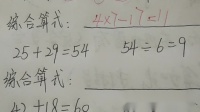 综合算式：4×7-17=11
25+29=54 54÷6=9
综合算式：
42+18=60